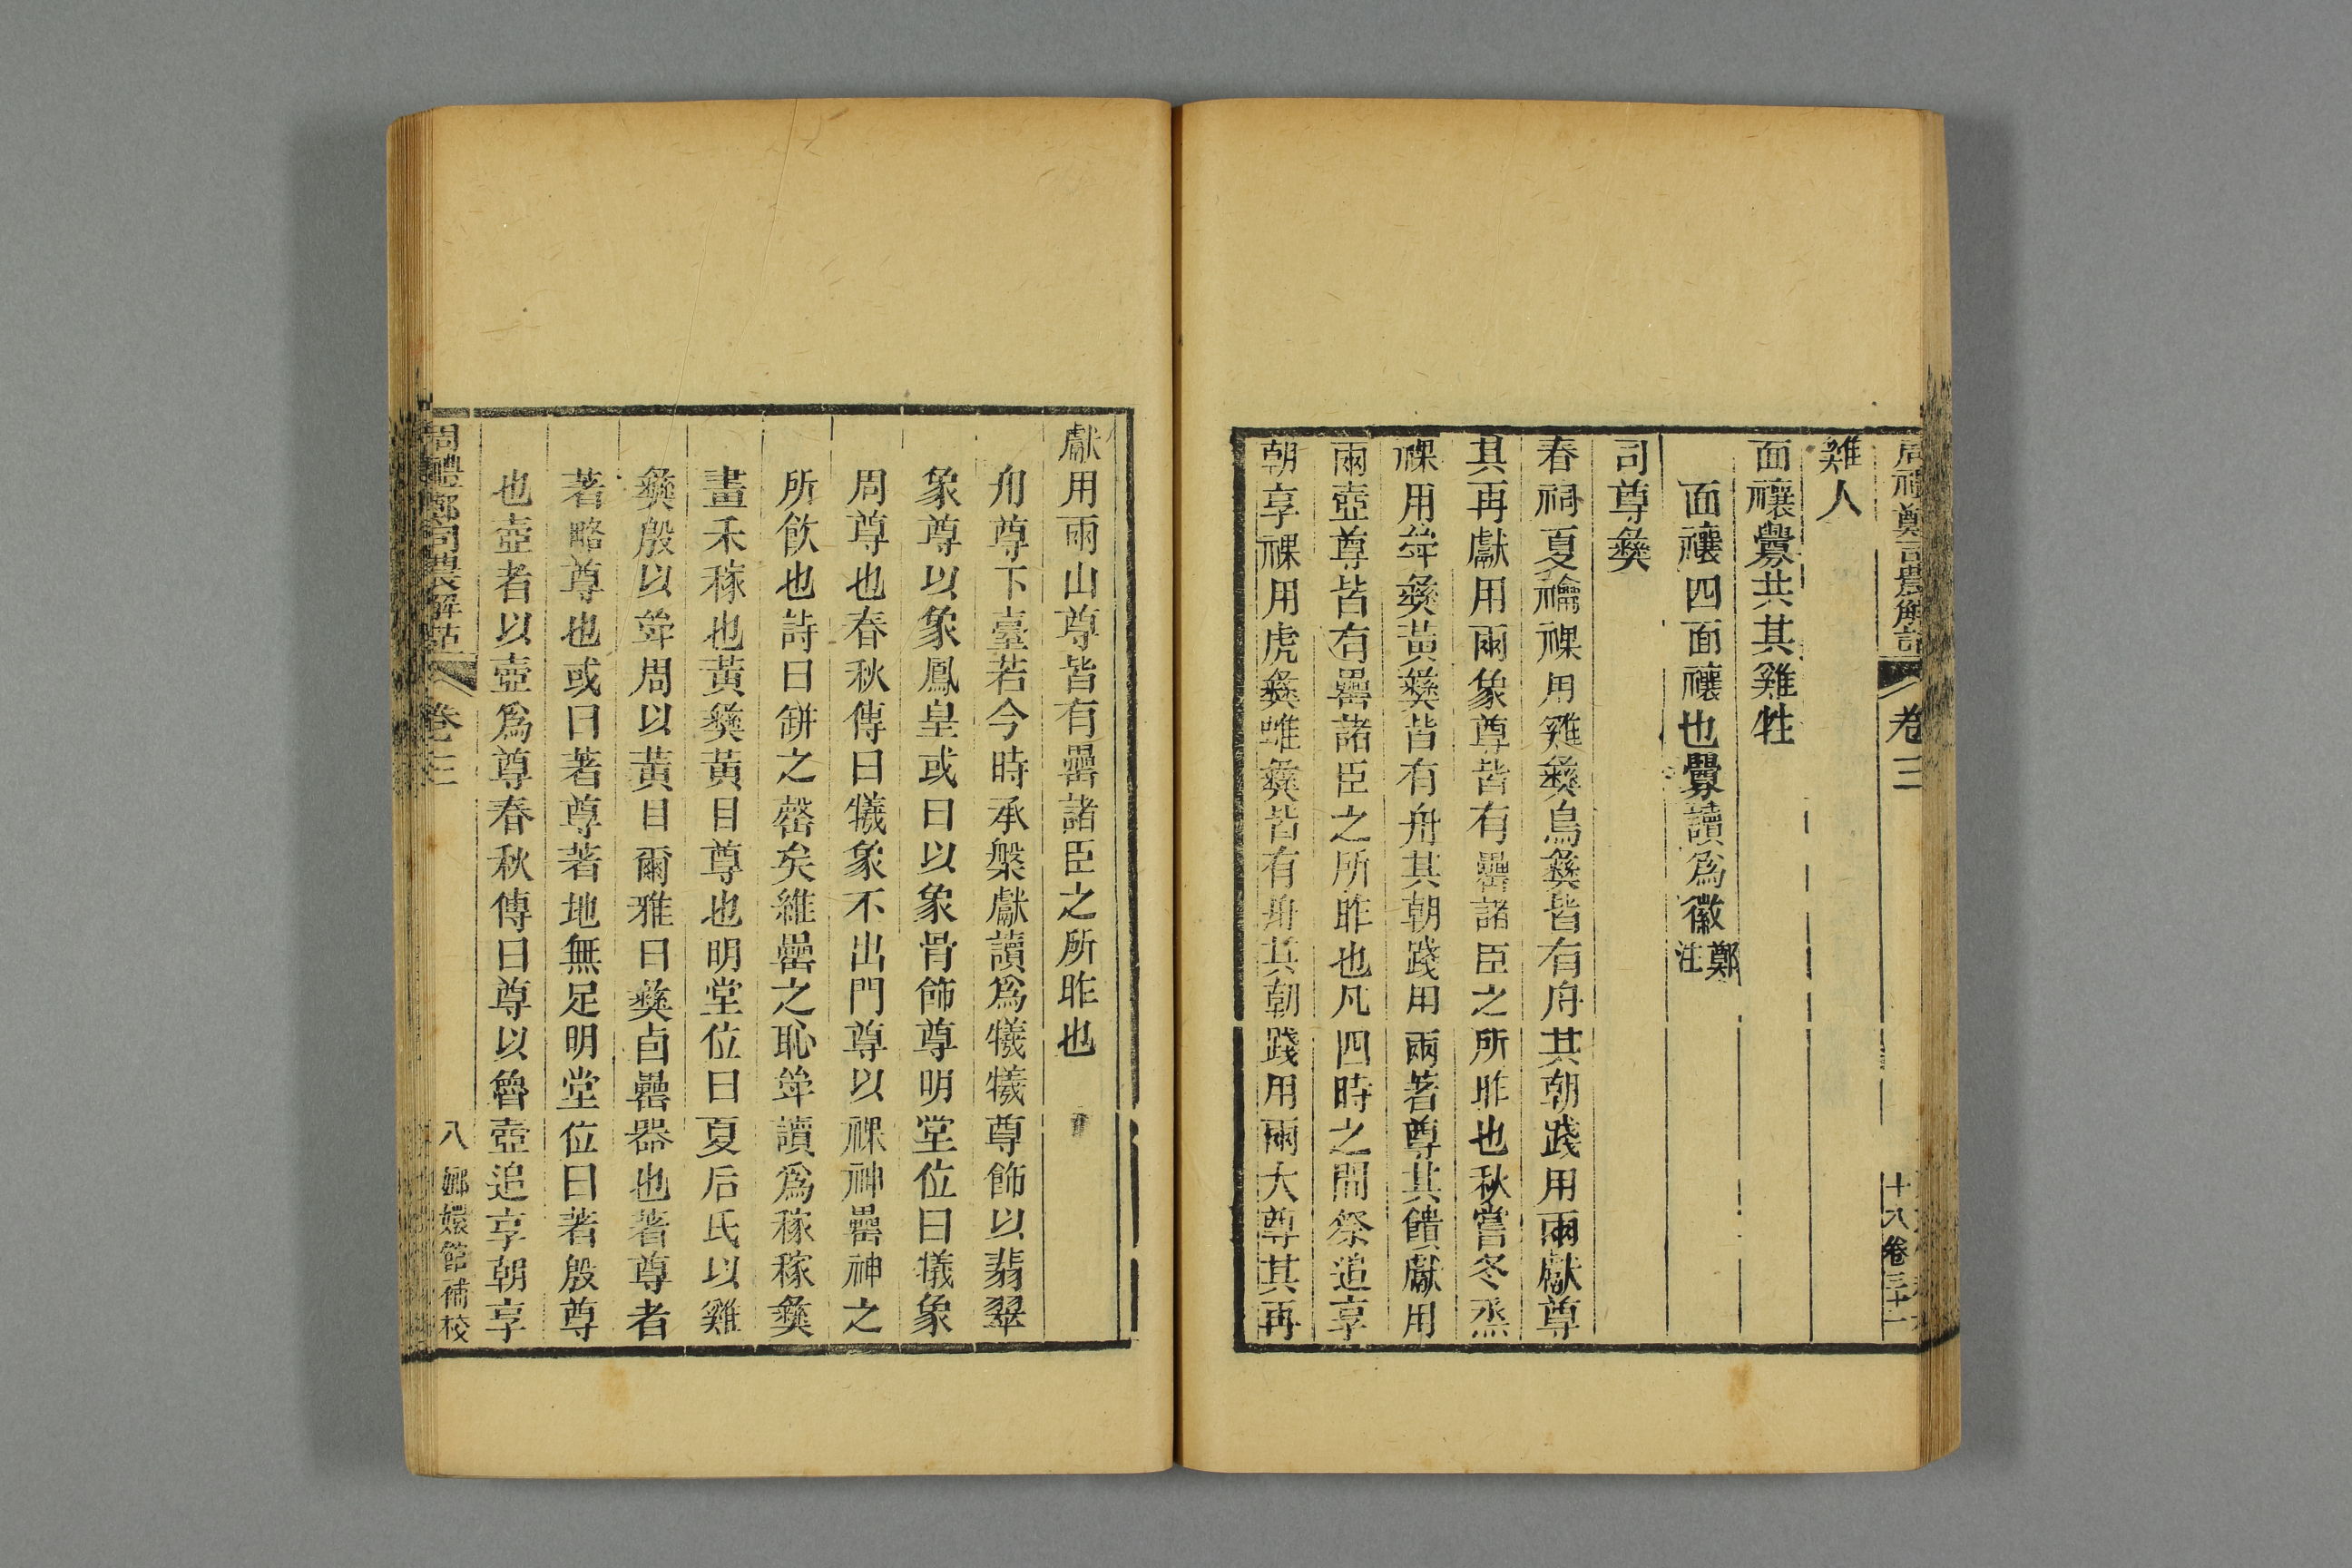 周禮鄭司農解詁 卷三 十八卷三十一
雞人
面禳釁共其雞牲
面禳四面禳也釁讀爲徽鄭注
司尊彝
春祠夏禴祼用雞彝鳥彝皆有舟其朝踐用兩獻尊
其再獻用兩象尊皆有罍諸臣之所昨也秋嘗冬烝
祼用斝彝黃彝皆有舟其朝踐用兩著尊其饋獻用
兩壺尊皆有罍諸臣之所昨也凡四時之間祭追享
朝享祼用虎彝蜼彝皆有舟其朝踐用兩大尊其再
獻用兩山尊皆有罍諸臣之所昨也
舟尊下臺若今時承槃獻讀爲犧犧尊飾以翡翠
象尊以象鳳皇或曰以象骨飾尊明堂位曰犧象
周尊也春秋傳曰犧象不出門尊以祼神罍神之
所飲也詩曰缾之罄矣維罍之恥斝讀爲稼稼彝
畫禾稼也黃彝黃目尊也明堂位曰夏后氏以雞
彝殷以斝周以黃目爾雅曰彝卣罍器也著尊者
著略尊也或曰著尊著地無足明堂位曰著殷尊
也壺者以壺爲尊春秋傳曰尊以魯壺追享朝享
周禮鄭司農解詁 卷三 八 嫏嬛館補校